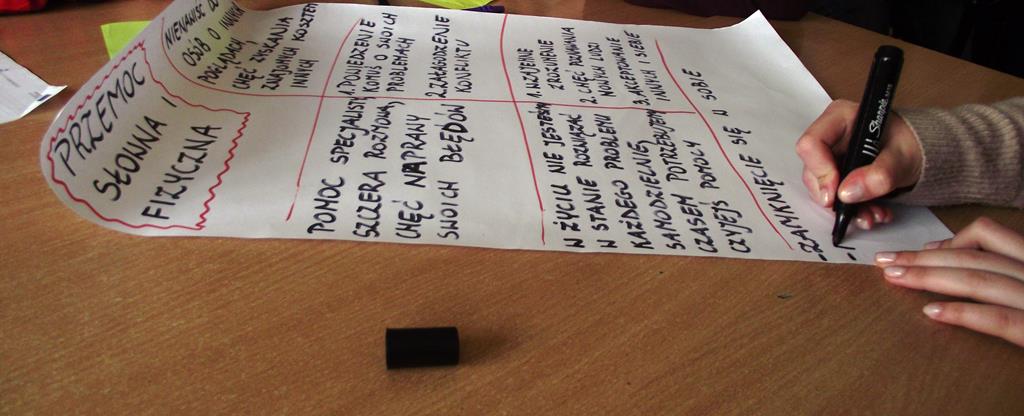 PRZEMOC
SŁOWNA I
FIZYCZNA
NIENAWIŚĆ DO
OSÓB O INNYCH
POGLĄDACH
CHĘĆ ZYSKANIA
ZNAJOMYCH KOSZTEM
INNYCH
1. POWIEDZENIE
KOMUŚ O SWOICH
PROBLEMACH
2. ZAŁAGODZENIE
KONFLIKTU
POMOC SPECJALISTY,
SZCZERA ROZMOWA,
CHĘĆ NAPRAWY
SWOICH BŁĘDÓW
1. WZAJEMNE
ZROZUMIENIE
2. CHĘĆ POZNAWANIA
NOWYCH LUDZI
3. AKCEPTOWANIE
INNYCH I SIEBIE
W ŻYCIU NIE JESTEŚM
W STANIE ROZWIĄZAĆ
KAŻDEGO PROBLEMU
SAMODZIELNIE,
CZASEM POTRZEBUJEM
CZYJEJŚ POMOCY
-ZAMYKNIĘCIE SIĘ W SOBIE
-
Sharpie